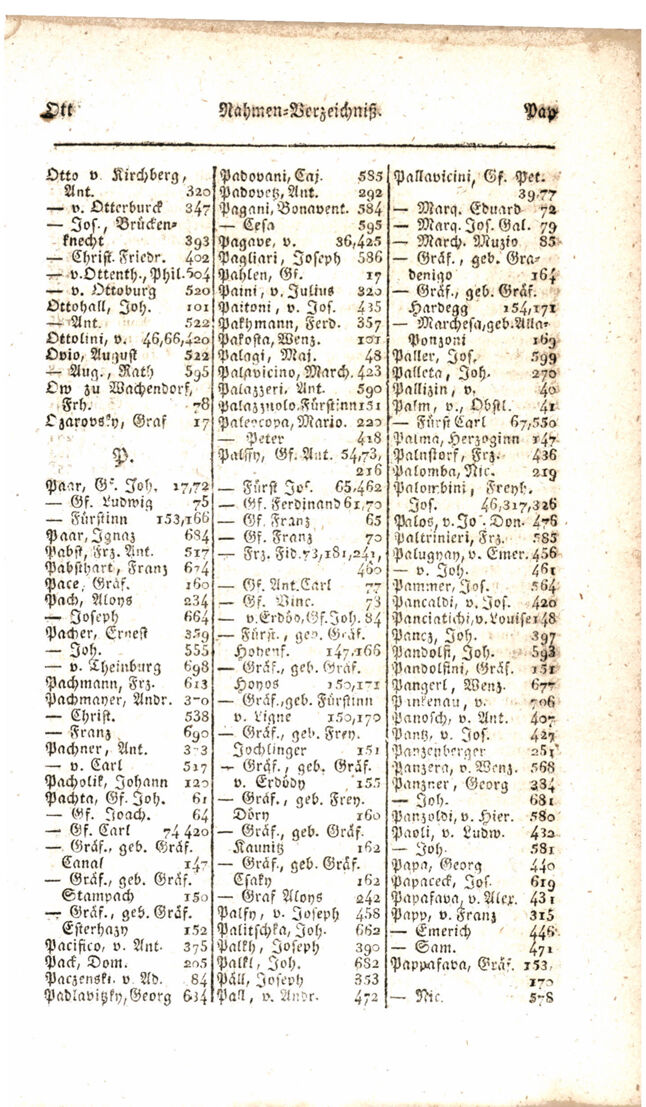 Ott
Nahmen-Verzeichniß.
Pap
Otto v. Kirchberg,
Ant. 320
— v. Otterburck 347
— Jos., Brücken-
knecht 393
— Christ. Friedr. 402
— v. Ottenth., Phil. 504
— v. Ottoburg 520
Ottohall, Joh. 101
— Ant. 522
Ottolini, v. 46,66,420
Ovio, August 522
— Aug., Rath 595
Ow zu Wachendorf,
Frh. 78
Ozarovsky, Graf 17
P.
Paar, Gf. Joh. 17,72
— Gf. Ludwig 75
— Fürstinn 153,166
Paar, Ignaz 684
Pabst, Frz. Ant. 517
Pabsthart, Franz 674
Pace, Gräf. 160
Pach, Aloys 234
— Joseph 664
Pacher, Ernest 359
— Joh. 555
— v. Theinburg 698
Pachmann, Frz. 613
Pachmayer, Andr. 370
— Christ. 538
— Franz 690
Pachner, Ant. 373
— v. Carl 517
Pacholik, Johann 120
Pachta, Gf. Joh. 61
— Gf. Joach. 64
— Gf. Carl 74 420
— Gräf., geb. Gräf.
Canal 147
— Gräf., geb. Gräf.
Stampach 150
— Gräf., geb. Gräf.
Esterhazy 152
Pacifico, v. Ant. 375
Pack, Dom. 205
Paczenski. v. Ad. 84
Padlavitzky, Georg 634
Padovani, Caj. 585
Padovetz, Ant. 292
Pagani, Bonavent. 584
— Cesa 595
Pagave, v. 36,425
Pagliari, Joseph 586
Pahlen, Gf. 17
Paini, v. Julius 320
Paitoni, v. Jos. 435
Pakhmann, Ferd. 357
Pakosta, Wenz. 101
Palagi, Maj. 48
Palavicino, March. 423
Palazzeri, Ant. 590
Palazznolo, Fürstinn 151
Paleocopa, Mario. 220
— Peter 418
Palffy, Gf. Ant. 54,73,
216
— Fürst Jos. 65,462
— Gf. Ferdinand 61,70
— Gf. Franz 65
— Gf. Franz 70
— Frz. Fid. 73,181,241,
460
— Gf. Ant. Carl 77
— Gf. Vinc. 73
— v. Erdöd, Gf. Joh. 84
— Fürst., geb. Gräf.
Hohenf. 147,166
— Gräf., geb. Gräf.
Hoyos 150,171
— Gräf., geb. Fürstinn
v. Ligne 150,170
— Gräf., geb. Frey.
Jochlinger 151
— Gräf., geb. Gräf.
v. Erdödy 155
— Gräf., geb. Frey.
Döry 160
— Gräf., geb. Gräf.
Kaunitz 162
— Gräf., geb. Gräf.
Csaky 162
— Graf Aloys 242
Palfy, v. Joseph 458
Palitschka, Joh. 662
Palkh, Joseph 390
Palkl, Joh. 682
Päll, Joseph 353
Pall, v. Andr. 472
Pallavicini, Gf. Pet.
39.77
— Marq. Eduard 72
— Marq. Jos. Gal. 79
— March. Muzio 85
— Gräf., geb. Gra-
denigo 164
— Gräf., geb. Gräf.
Hardegg 154,171
— Marchesa, geb. Alla-
Ponzoni 169
Paller, Jos. 599
Palleta, Joh. 270
Pallizin, v. 40
Palm, v., Obstl. 41
— Fürst Carl 67,550
Palma, Herzoginn 147
Palnstorf, Frz. 436
Palomba, Nic. 219
Palombini, Freyh.
Jos. 46,317,326
Palos, v. Jos. Don. 476
Paltrinieri, Frz. 585
Palugyay, v. Emer. 456
— v. Joh. 461
Pammer, Jos. 564
Pancaldi, v. Jos. 420
Panciatichi, v. Louise 148
Pancz, Joh. 397
Pandolfi, Joh. 593
Pandolfini, Gräf. 151
Pangerl, Wenz. 677
Pankenau, v. 706
Panosch, v. Ant. 407
Pantz, v. Jos. 427
Panzenberger 251
Panzera, v. Wenz. 568
Panzner, Georg 384
— Joh. 681
Panzoldi, v. Hier. 580
Paoli, v. Ludw. 432
— Joh. 581
Papa, Georg 440
Papaceck, Jos. 619
Papafava, v. Alex. 431
Papp, v. Franz 315
— Emerich 446
— Sam. 471
Pappafava, Gräf. 153,
170
— Nic. 578